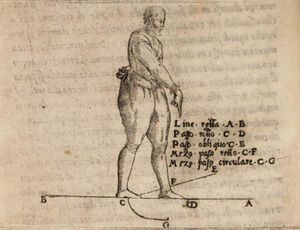 Line retta · A · B
Paso retto · C · D
Paso obliquo · C · E
Mezo paso retto · C · F
Mezo paso circulare · C · G
E
F
B C D A
G